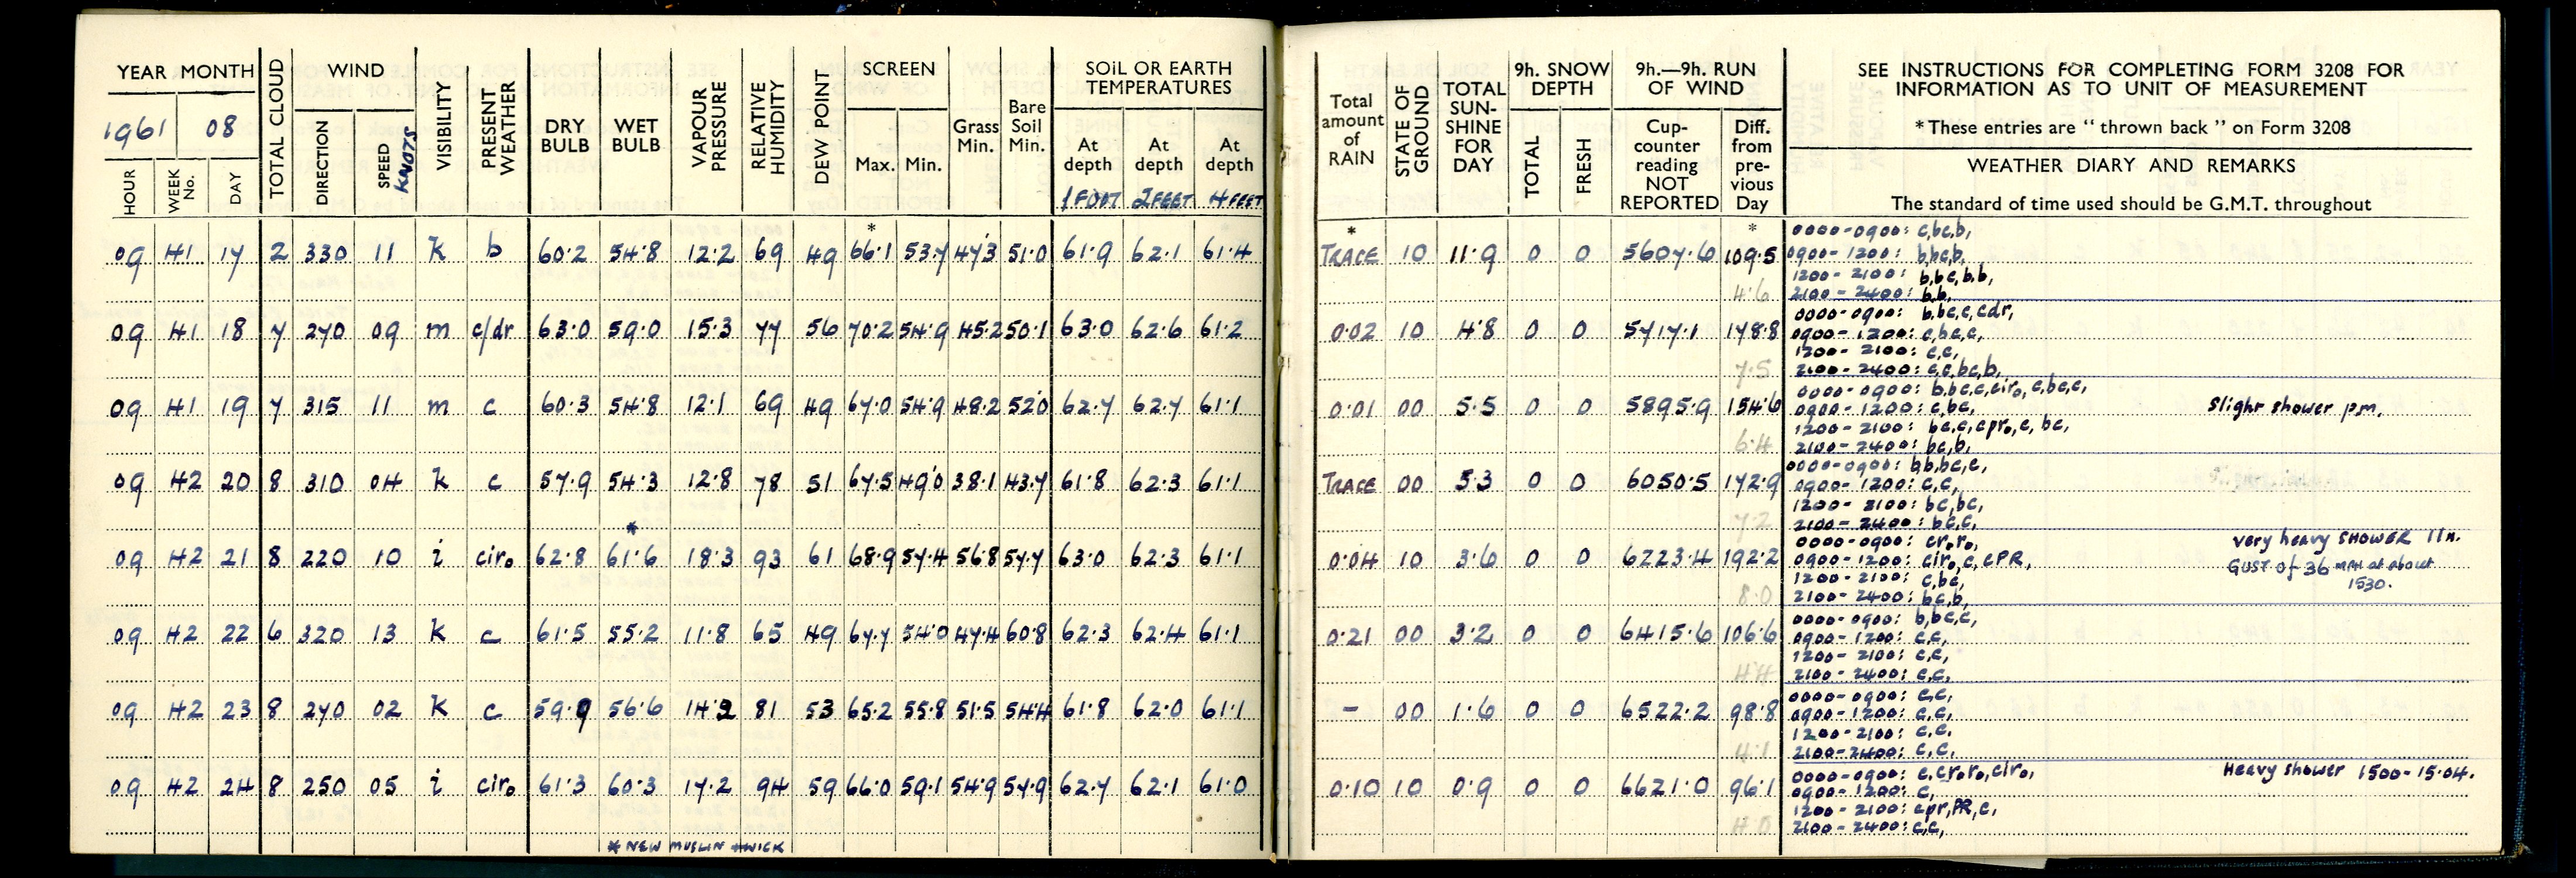 YEAR MONTH
1961 08
HOUR WEEK No. DAY TOTAL CLOUD
WIND
DIRECTION SPEED KNOTS
VISIBILITY PRESENT WEATHER DRY BULB WET BULB VAPOUR PRESSURE RELATIVE HUMIDITY DEW POINT
SCREEN
Max. Min. Grass Min. Bare Soil Min.
SOIL OR EARTH TEMPERATURES
At depth 1 FOOT At depth 2 FEET At depth 4 FEET
Total amount of RAIN STATE OF GROUND TOTAL SUN-SHINE FOR DAY
9h. SNOW DEPTH
TOTAL FRESH
9h.—9h. RUN OF WIND
Cup-counter reading NOT REPORTED Diff. from pre-vious Day
SEE INSTRUCTIONS FOR COMPLETING FORM 3208 FOR
INFORMATION AS TO UNIT OF MEASUREMENT
* These entries are " thrown back " on Form 3208
WEATHER DIARY AND REMARKS
The standard of time used should be G.M.T. throughout
* * *
09 41 17 2 330 11 k b 60.2 54.8 12.2 69 49 66.1 53.7 47.3 51.0 61.9 62.1 61.4 TRACE 10 11.9 0 0 5607.6 109.5
4.6
0000-0900: c,bc,b,
0900-1200: b,bc,b,
1200-2100: b,bc,b,b,
2100-2400: b,b,
09 41 18 7 270 09 m c/dr 63.0 59.0 15.3 77 56 70.2 54.9 45.2 50.1 63.0 62.6 61.2 0.02 10 4.8 0 0 5717.1 178.8
7.5
0000-0900: b,bc,c,cdr,
0900-1200: c,bc,c,
1200-2100: c,c,
2100-2400: c,c,bc,b,
09 41 19 7 315 11 m c 60.3 54.8 12.1 69 49 67.0 54.9 48.2 52.0 62.7 62.7 61.1 0.01 00 5.5 0 0 5895.9 154.6
6.4
0000-0900: b,bc,c,cir₀,c,bc,c,
0900-1200: c,bc,
Slight shower p.m.
1200-2100: bc,c,cpr₀,c,bc,
2100-2400: bc,b,
09 42 20 8 310 04 k c 57.9 54.3 12.8 78 51 67.5 49.0 38.1 43.7 61.8 62.3 61.1 TRACE 00 5.3 0 0 6050.5 172.9
7.2
0000-0900: b,b,bc,c,
0900-1200: c,c,
1200-2100: bc,bc,
2100-2400: bc,c,
*
09 42 21 8 220 10 i cir₀ 62.8 61.6 18.3 93 61 68.9 57.4 56.8 57.7 63.0 62.3 61.1 0.04 10 3.6 0 0 6223.4 192.2
8.0
0000-0900: cr₀r₀,
0900-1200: cir₀,c,cPR,
1200-2100: c,bc,
2100-2400: bc,b,
Very heavy SHOWER 11h.
GUST of 36 MPH at about
1530.
09 42 22 6 320 13 k c 61.5 55.2 11.8 65 49 67.7 54.0 47.4 60.8 62.3 62.4 61.1 0.21 00 3.2 0 0 6415.6 106.6
4.4
0000-0900: b,bc,c,
0900-1200: c,c,
1200-2100: c,c,
2100-2400: c,c,
09 42 23 8 270 02 k c 59.9 56.6 14.2 81 53 65.2 55.8 51.5 54.4 61.8 62.0 61.1 - 00 1.6 0 0 6522.2 98.8
4.1
0000-0900: c,c,
0900-1200: c,c,
1200-2100: c,c,
2100-2400: c,c,
09 42 24 8 250 05 i cir₀ 61.3 60.3 17.2 94 59 66.0 59.1 54.9 57.9 62.7 62.1 61.0 0.10 10 0.9 0 0 6621.0 96.1
4.0
0000-0900: c,cr₀r₀,cir₀,
Heavy shower 1500-15.04.
0900-1200: c,
1200-2100: cpr,PR,c,
2100-2400: c,c,
* NEW MUSLIN + WICK